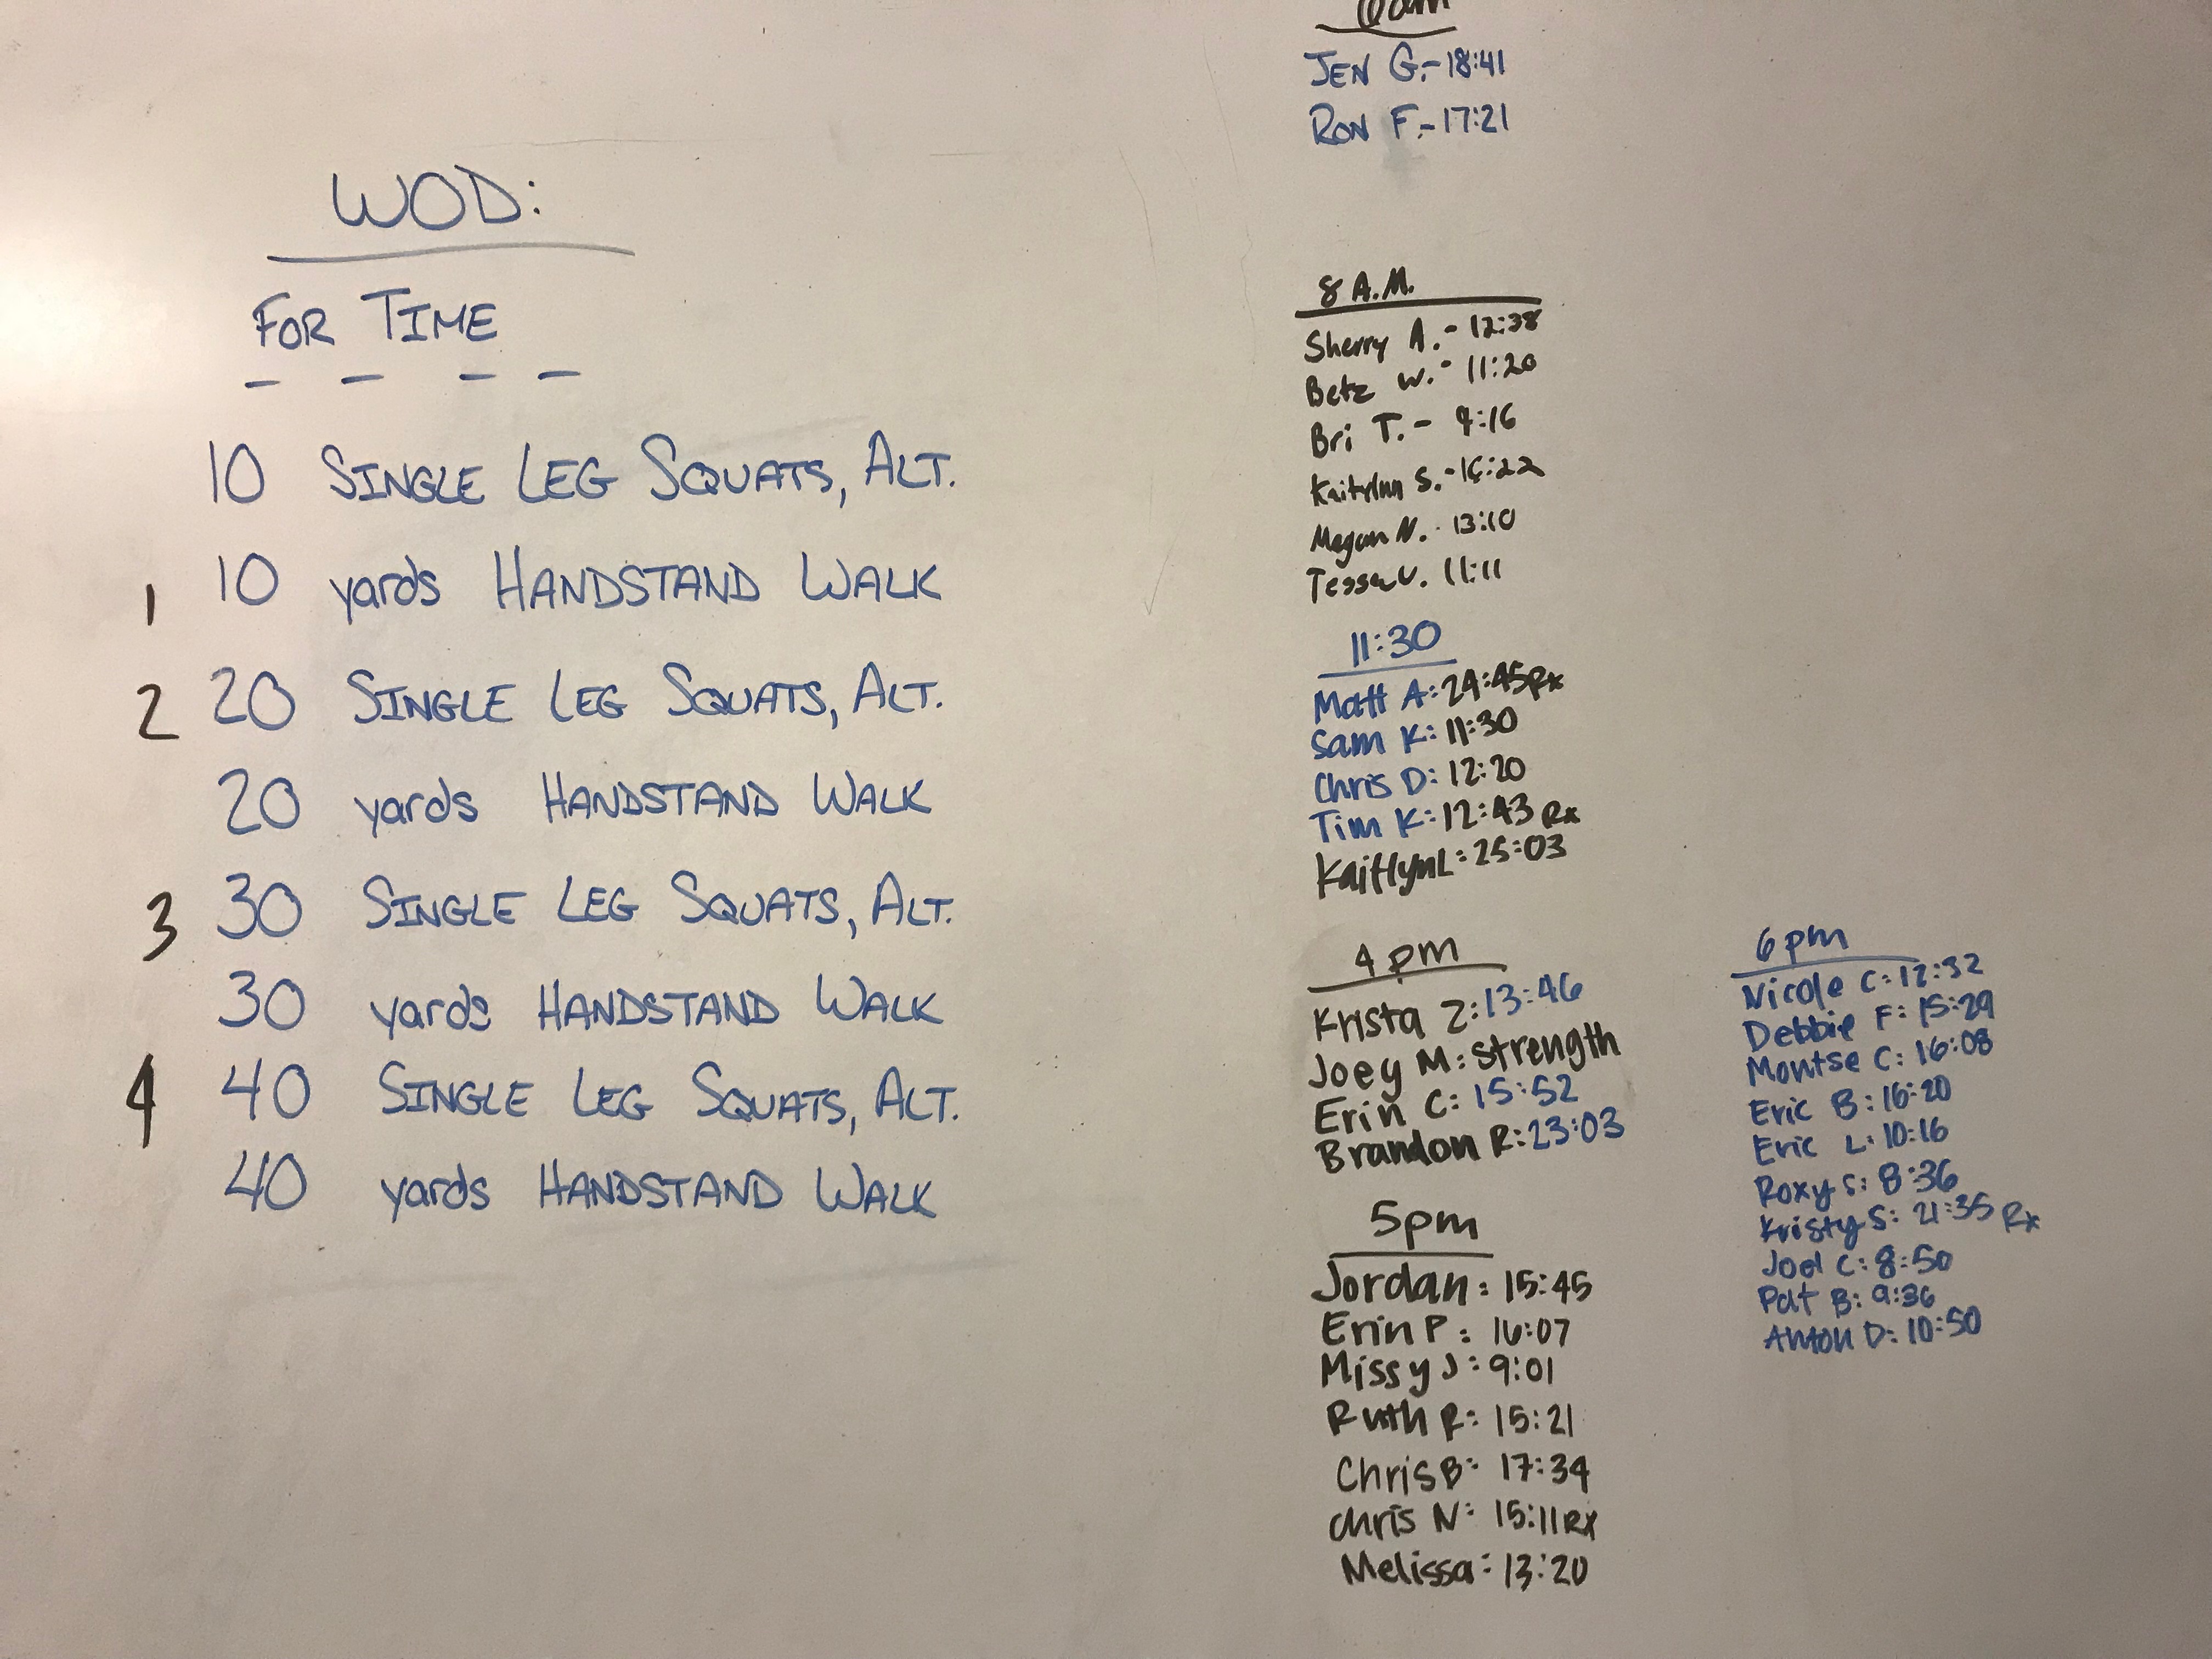 WOD:
FOR TIME
10 SINGLE LEG SQUATS, ALT.
1 10 yards HANDSTAND WALK
2 20 SINGLE LEG SQUATS, ALT.
20 yards HANDSTAND WALK
3 30 SINGLE LEG SQUATS, ALT.
30 yards HANDSTAND WALK
4 40 SINGLE LEG SQUATS, ALT.
40 yards HANDSTAND WALK
JEN G.-18:41
RON F.-17:21
8 A.M.
Sherry A.- 12:38
Betz W.- 11:20
Bri T.-
Kaitylnn S.-
Megan N. - 13:10
Tessa V. 11:11
11:30
Matt A: 24:45 Rx
Sam K: 11:30
Chris D: 12:20
Tim K: 12:43 Rx
Kaitlyn L: 25:03
4 pm
Krista Z: 13:46
Joey M: Strength
Erin C: 15:52
Brandon R: 23:03
5pm
Jordan: 15:45
Erin P: 16:07
Missy J: 9:01
Ruth R: 15:21
Chris B: 17:34
Chris N: 15:11 Rx
Melissa: 13:20
6 pm
Nicole C: 12:32
Debbie F: 15:29
Montse C: 16:08
Eric B: 16:20
Eric L: 10:16
Roxy S: 8:36
Kristy S: 21:35 Rx
Joel C: 8:50
Pat B: 9:36
Anton D: 10:50